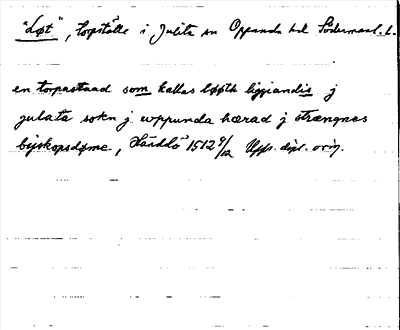 "Løt", torpställe i Julita sn Oppunda hd Södermanl. l.
en torpastaad som kallas lööth liggiandis j
julata sokn j wppunda hærad j strængnæs
byskopsdøme, Händelö 1512 9/12 Upps. dipl. orig.